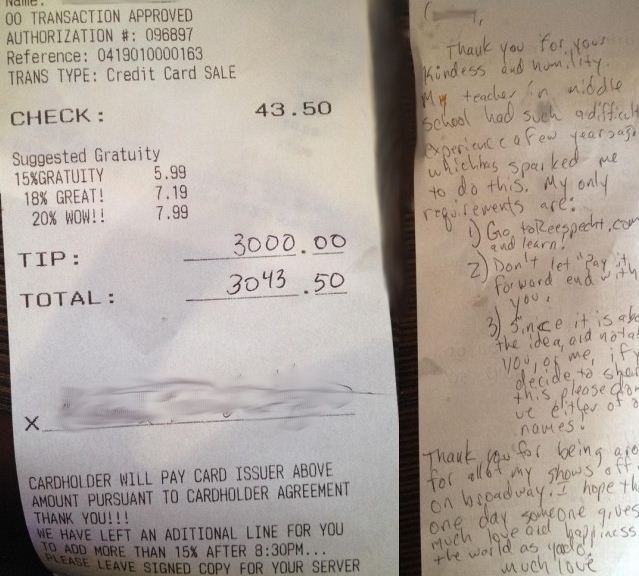 Name:
00 TRANSACTION APPROVED
AUTHORIZATION #: 096897
Reference: 0419010000163
TRANS TYPE: Credit Card SALE
CHECK: 43.50
Suggested Gratuity
15%GRATUITY 5.99
18% GREAT! 7.19
20% WOW!! 7.99
TIP: 3000.00
TOTAL: 3043.50
X
CARDHOLDER WILL PAY CARD ISSUER ABOVE
AMOUNT PURSUANT TO CARDHOLDER AGREEMENT
THANK YOU!!!
WE HAVE LEFT AN ADITIONAL LINE FOR YOU
TO ADD MORE THAN 15% AFTER 8:30PM...
PLEASE LEAVE SIGNED COPY FOR YOUR SERVER
Thank you for your
Kindess and humility.
My teacher in middle
school had such a difficult
experience a few years ago
which has sparked me
to do this. My only
requirements are:
1) Go to Reespecht.com
and learn!
2) Don't let "Pay it
forward end with
you.
3) Since it is abo
the idea, and not a
you, or me, if y
decide to sha
this please don
use either of o
names!
Thank you for being aro
for all of my shows off
on broadway. I hope th
one day someone gives
much love and happiness
the world as you do!
much love